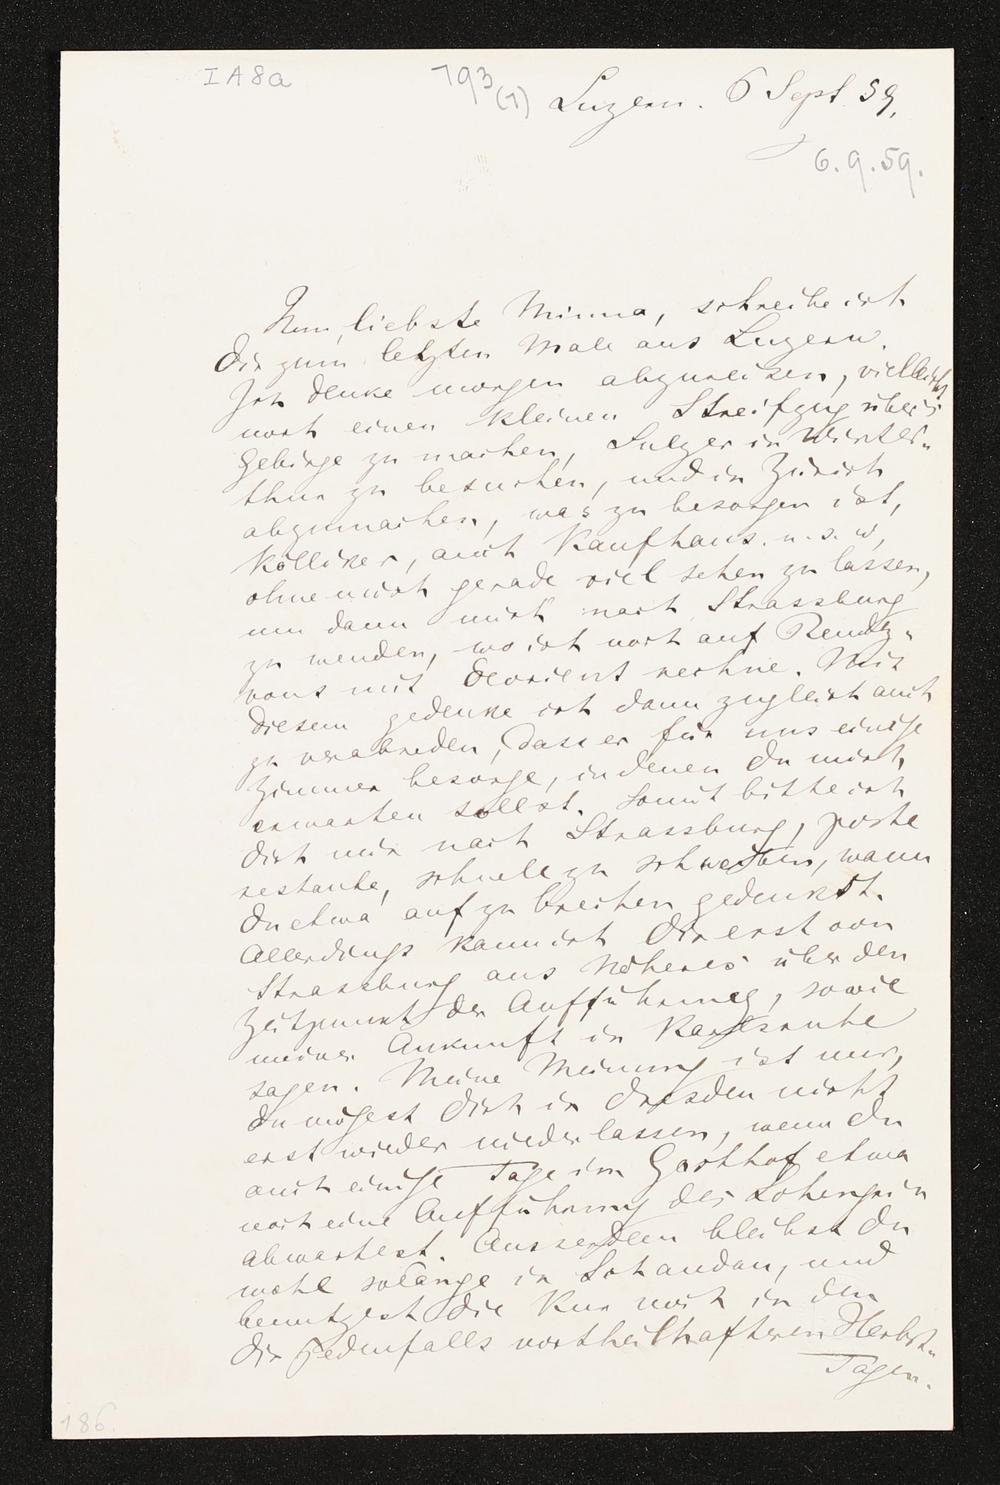 IA8a
793
(1)
Luzern. 6 Sept 59.
6.9.59.
Nun, liebste Minna, schreibe ich
Dir zum letzten Male aus Luzern.
Ich denke morgen abzureisen, vielleicht
noch einen kleinen Streifzug über's
Gebirge zu machen, Sulzer in Winter-
thur zu besuchen, und in Zürich
abzumachen, was zu besorgen ist,
Kölliker, auch Kaufhaus. u. s. w,
ohne mich gerade viel sehen zu lassen,
um dann mich nach Strassburg
zu wenden, wo ich noch auf Rendez-
vous mit Devrient rechne. Mit
diesem gedenke ich dann zugleich auch
zu verabreden, dass er für uns einige
Zimmer besorge, in denen Du mich
erwarten sollst. Somit bitte ich
Dich mir nach Strassburg, poste
restante, schnell zu schreiben, wann
Du etwa aufzubrechen gedenkst.
Allerdings kann ich Dir erst von
Strassburg aus Näheres über den
Zeitpunkt der Aufführung, sowie
meiner Ankunft in Karlsruhe
sagen. Meine Meinung ist nur,
Du mögest Dich in Dresden nicht
erst wieder niederlassen, wenn Du
auch einige Tage im Gasthof etwa
noch eine Aufführung des Lohengrin
abwartest. Ausserdem bleibst Du
wohl solange in Schandau, und
benutzest die Kur noch in den
Dir jedenfalls vortheilhafteren Herbst-
Tagen.
186.